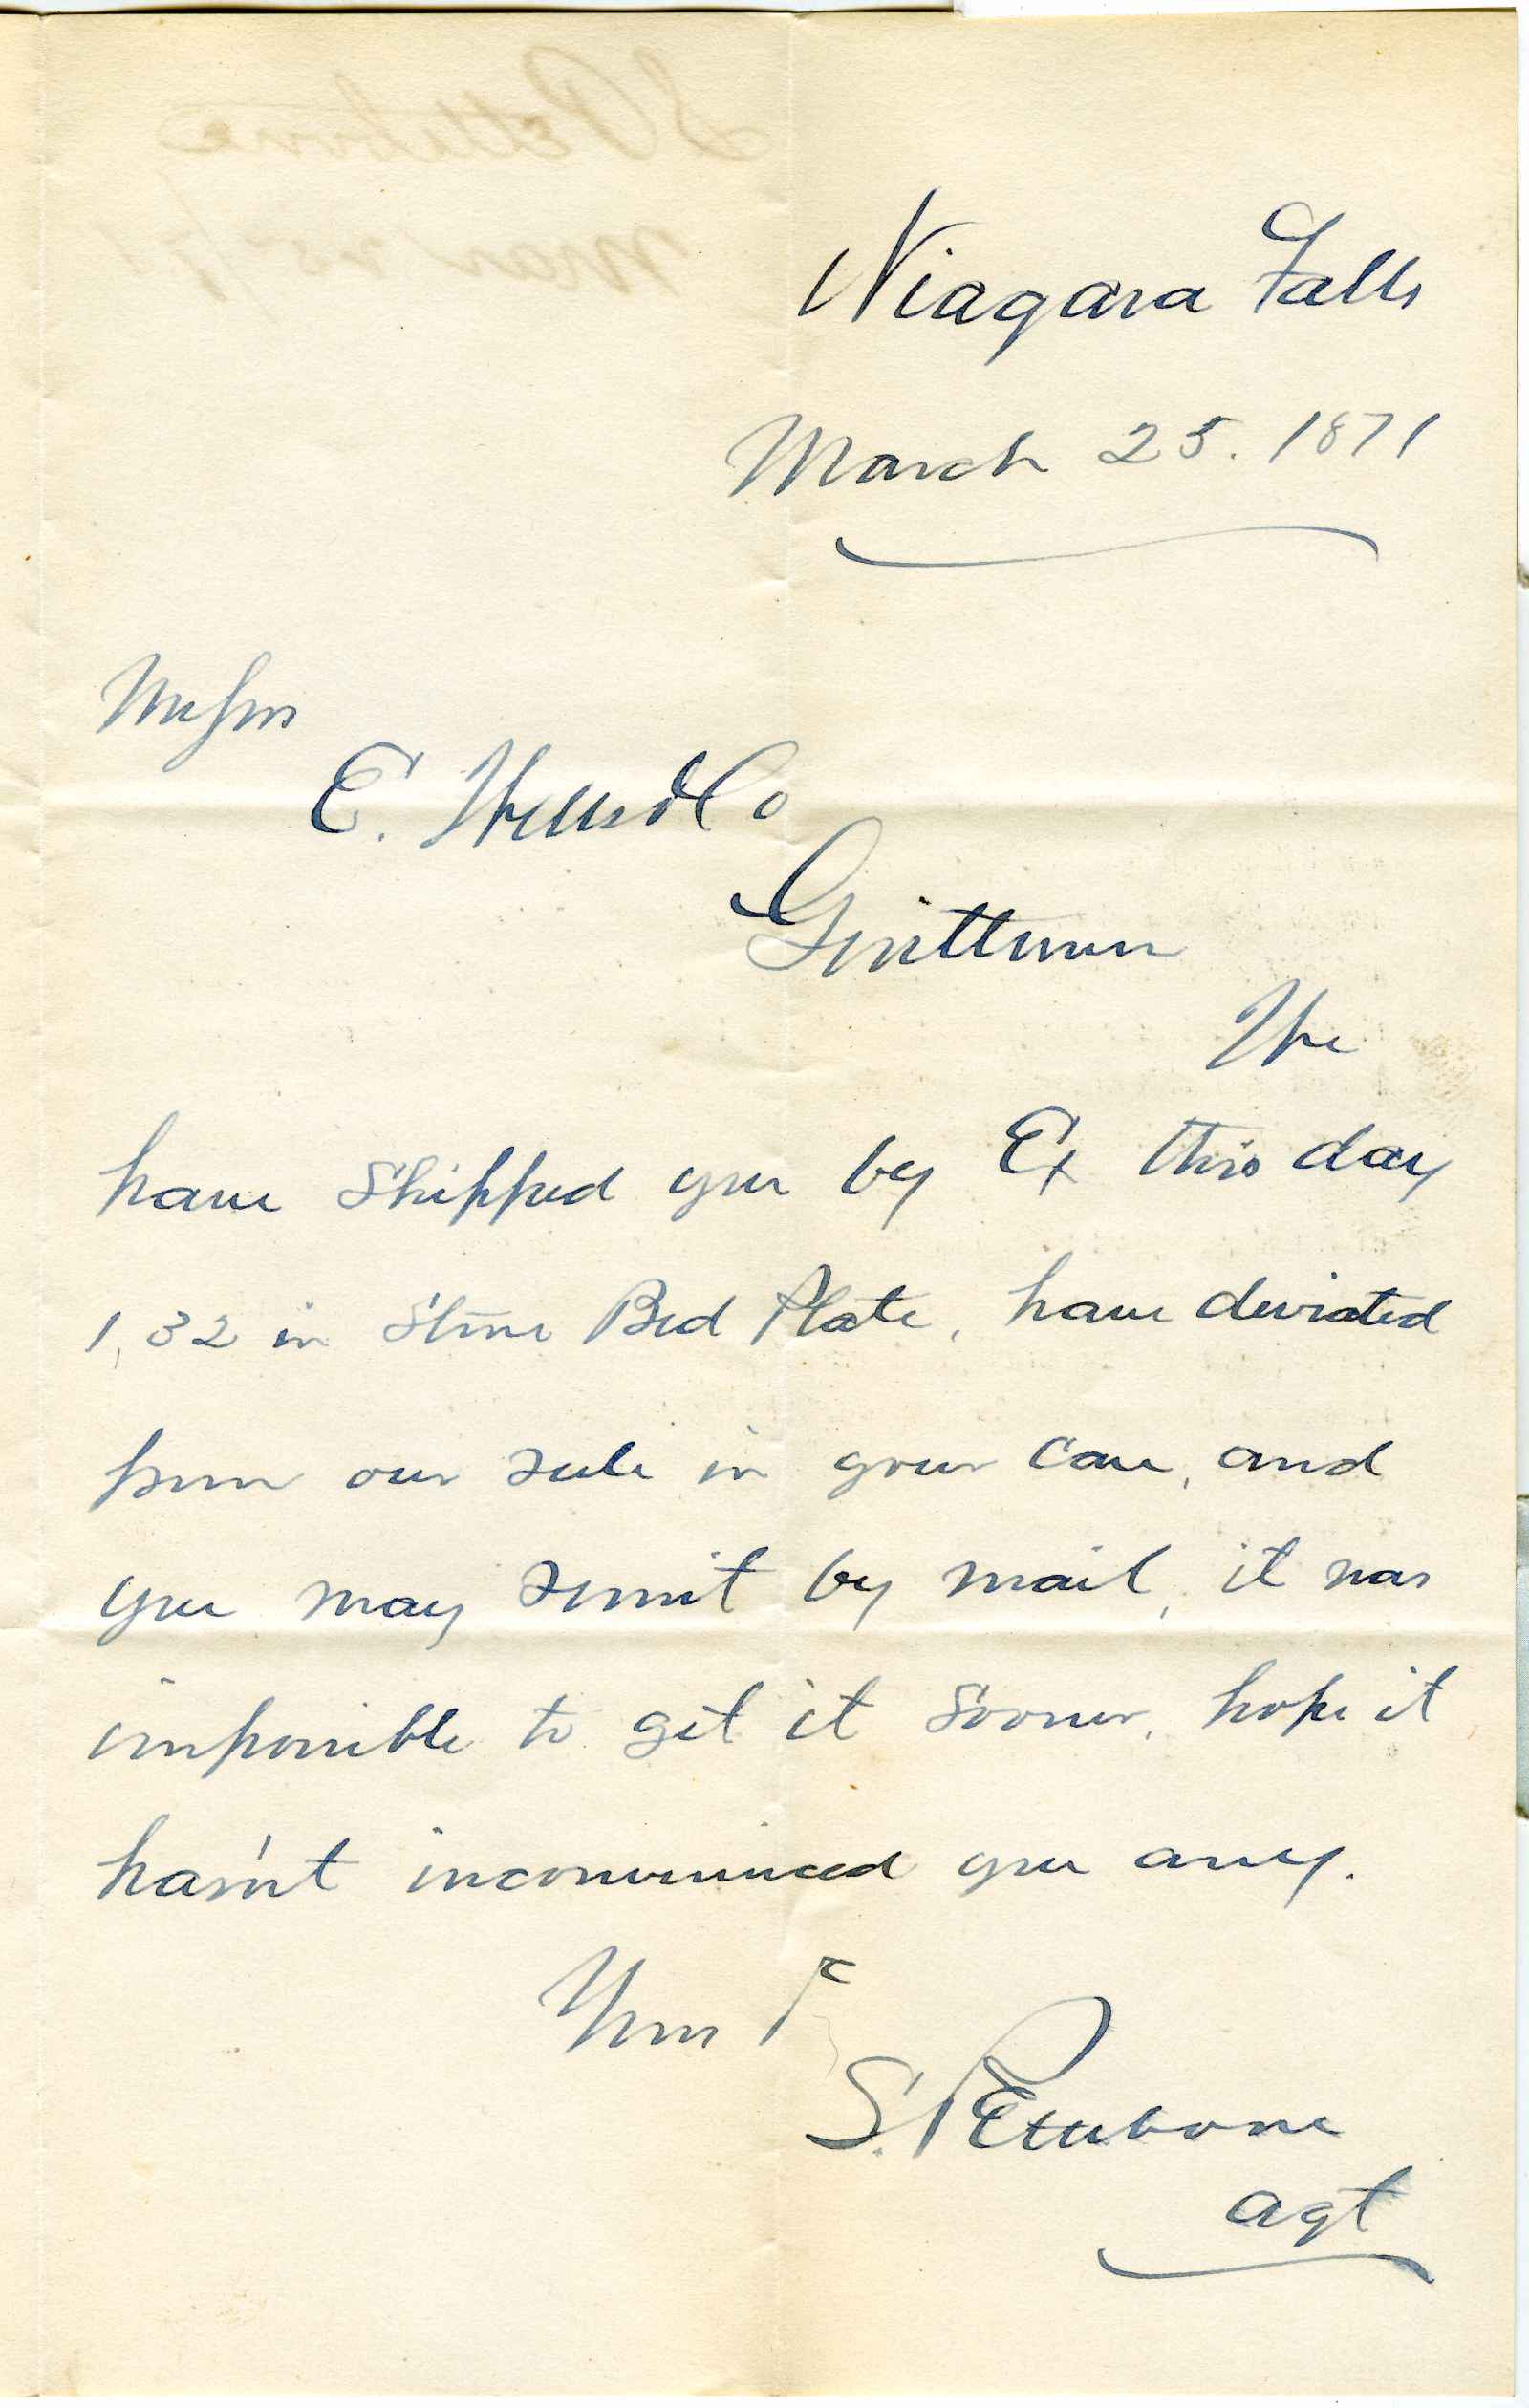 S Pettebone
Mar 25 / 71
Niagara Falls
March 25. 1871
Messrs
E. Wells & Co
Gentlemen
We
have shipped you by Ex this day
1, 32 in Stone Bed Plate, have deviated
from our rule in your case, and
you may remit by mail, it was
impossible to get it sooner, hope it
hasn't inconvenienced you any.
Yours
S. Pettebone
agt